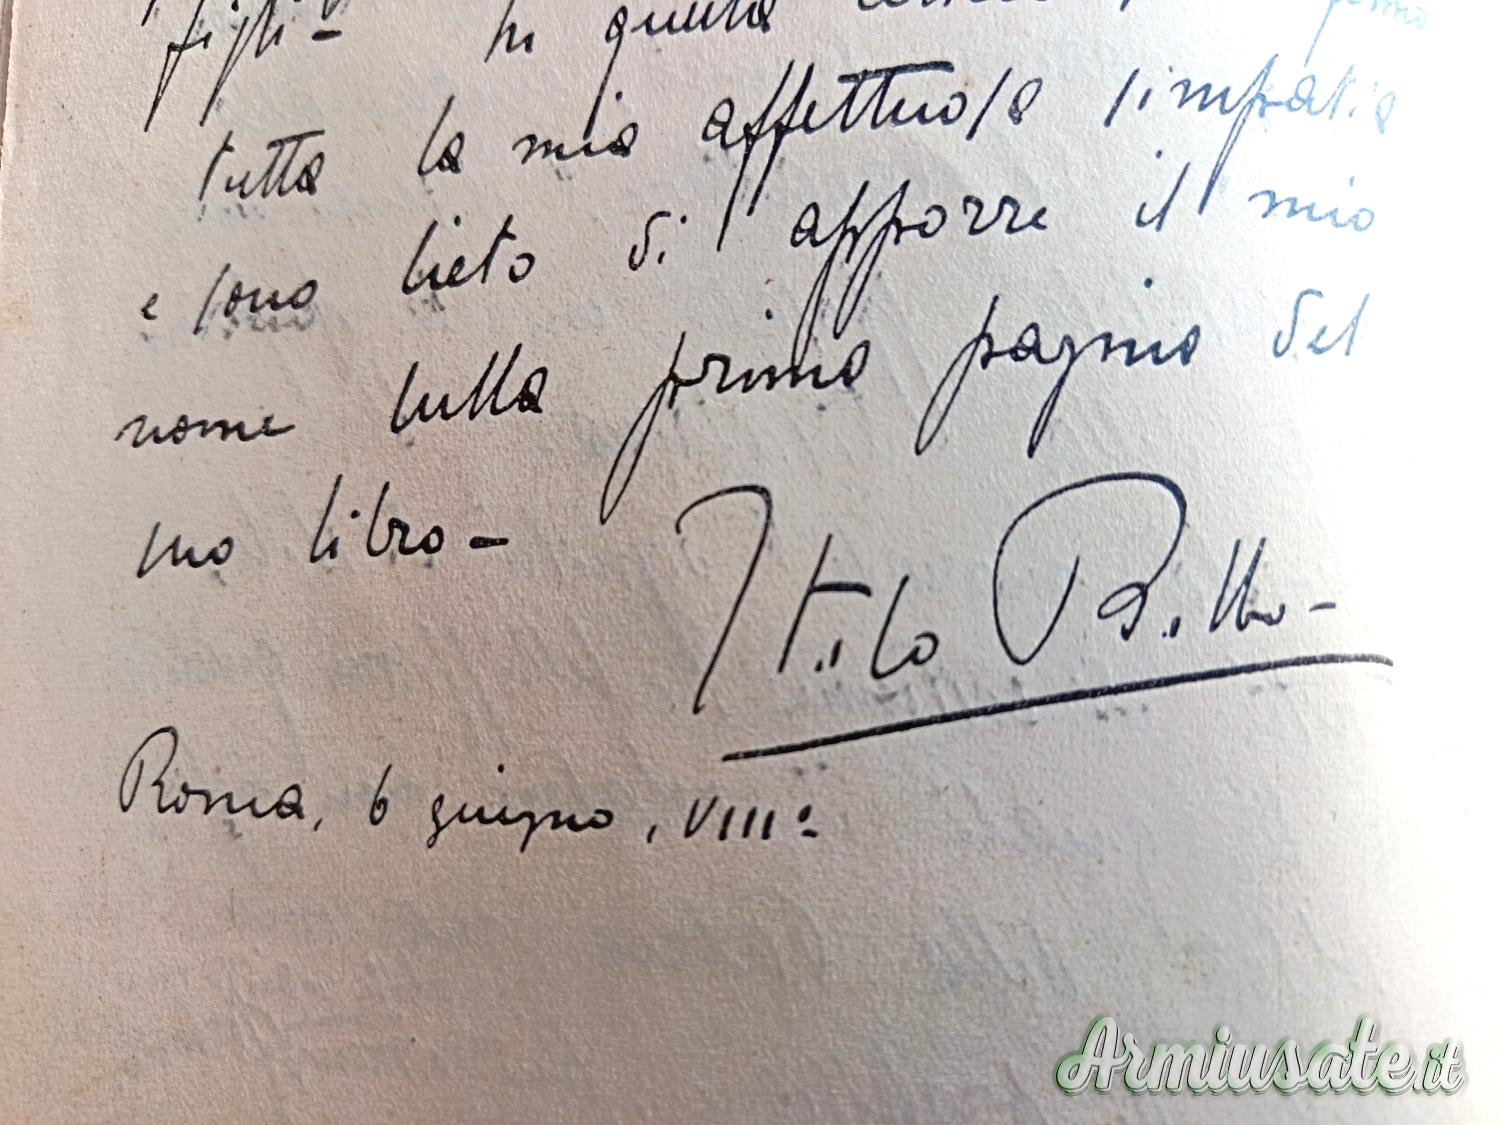 figli - In questa
tutta la mia affettuosa simpatia
e sono lieto di apporre il mio
nome sulla prima pagina del
suo libro -
Italo Balbo -
Roma, 6 giugno, VIIIº
Armiusate.it